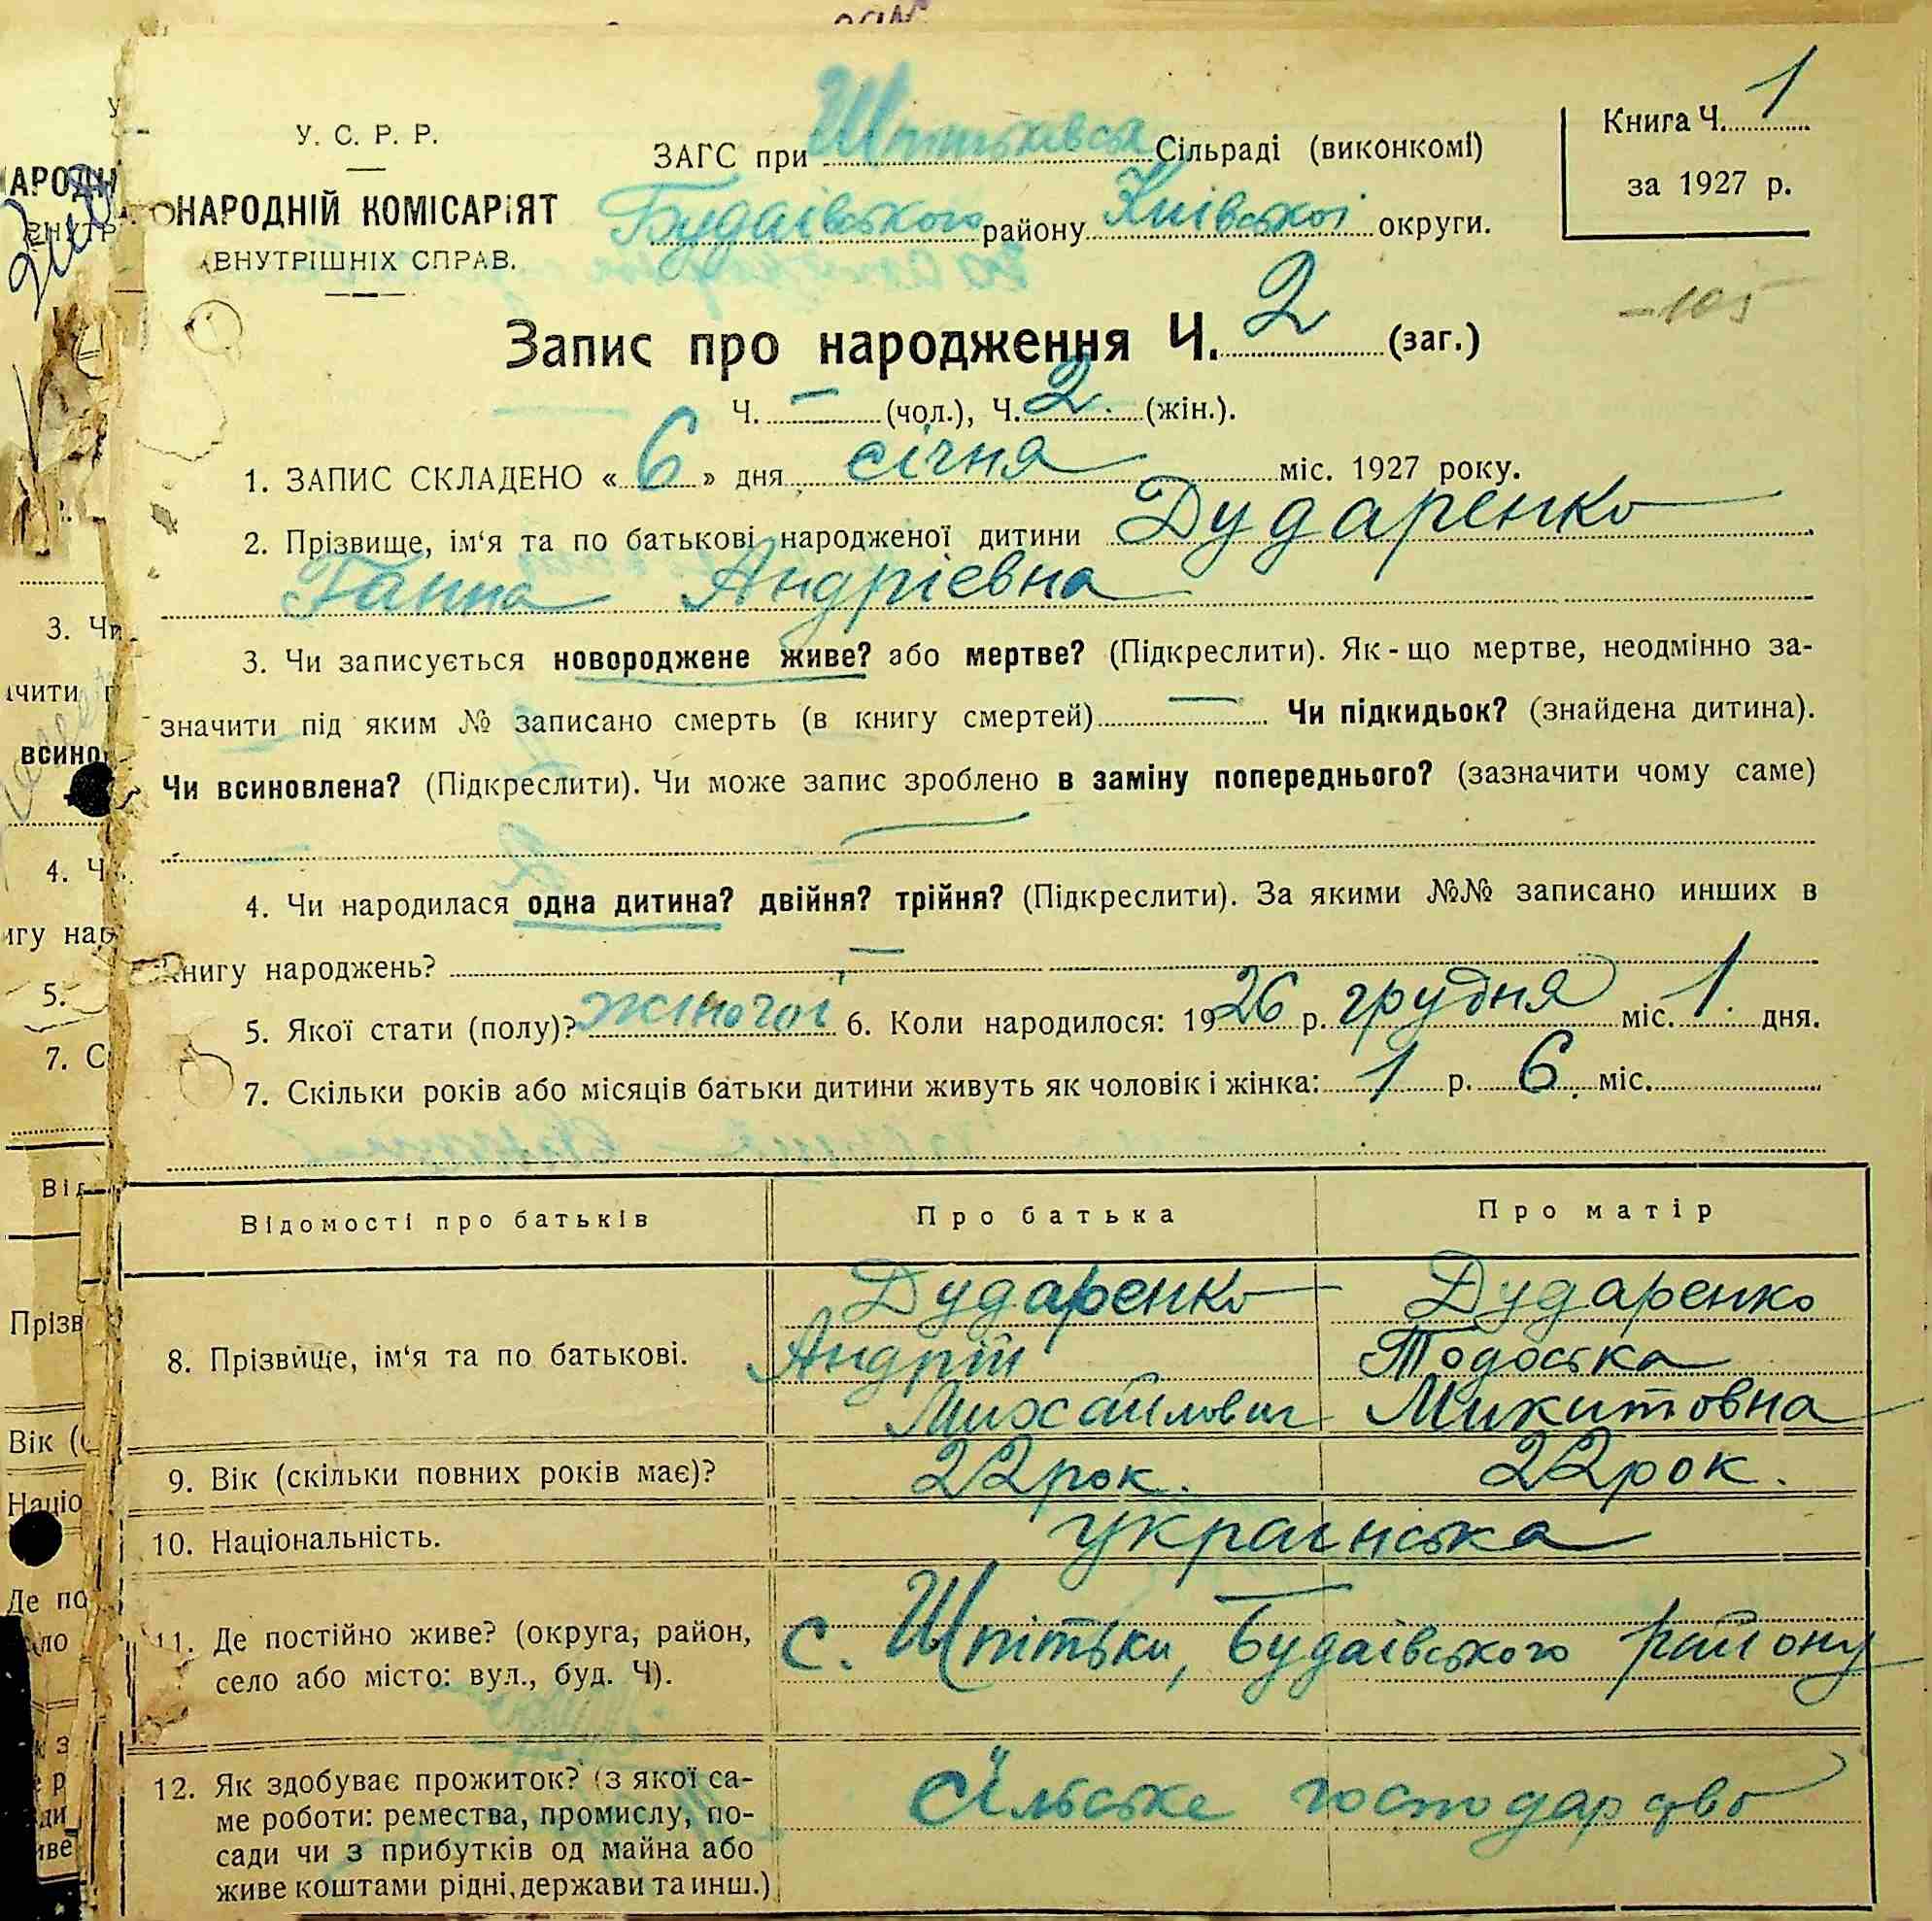 Книга Ч. 1
за 1927 р.
У. С. Р. Р.
НАРОДНІЙ КОМІСАРІЯТ
ВНУТРІШНІХ СПРАВ.
ЗАГС при Шпитьківська Сільраді (виконкомі)
Будаівського району Київської округи.
—105
Запис про народження Ч. 2 (заг.)
Ч. — (чол.), Ч. 2. (жін.).
1. ЗАПИС СКЛАДЕНО « 6 » дня січня міс. 1927 року.
2. Прізвище, ім‘я та по батькові народженої дитини Дударенко
Ганна Андріевна
3. Чи записується новороджене живе? або мертве? (Підкреслити). Як-що мертве, неодмінно за-
значити під яким № записано смерть (в книгу смертей) — Чи підкидьок? (знайдена дитина).
Чи всиновлена? (Підкреслити). Чи може запис зроблено в заміну попереднього? (зазначити чому саме)
—
4. Чи народилася одна дитина? двійня? трійня? (Підкреслити). За якими №№ записано инших в
книгу народжень? —
5. Якої стати (полу)? жіночої 6. Коли народилося: 1926 р. грудня міс. 1. дня.
7. Скільки років або місяців батьки дитини живуть як чоловік і жінка: 1 р. 6. міс.
Відомості про батьків Про батька Про матір
8. Прізвище, ім‘я та по батькові.
Дударенко Дударенко
Андрій Тодоська
Михайлович Микитовна
9. Вік (скільки повних років має)? 22 рок. 22 рок.
10. Національність. украінська
11. Де постійно живе? (округа, район,
село або місто: вул., буд. Ч).
с. Шпітьки, Будаівського району
12. Як здобуває прожиток? (з якої са-
ме роботи: ремества, промислу, по-
сади чи з прибутків од майна або
живе коштами рідні, держави та инш.)
сільське господарство